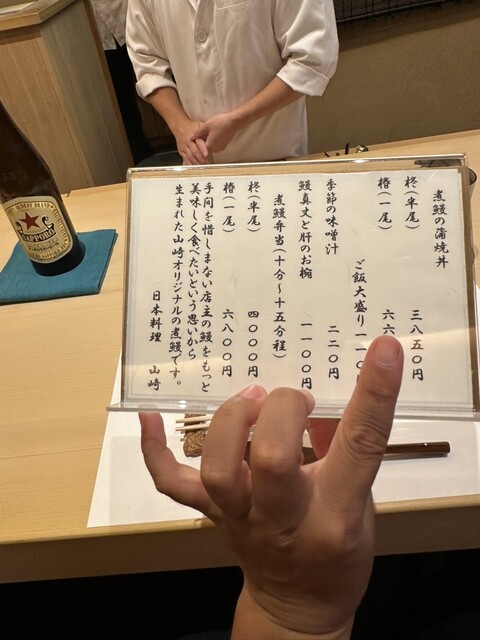 煮鰻の蒲焼丼
柊(半尾) 三八五〇円
椿(一尾) 六六
ご飯大盛り 一一〇
季節の味噌汁 二二〇円
鰻真丈と肝のお椀 一一〇〇円
煮鰻弁当(十分~十五分程)
柊(半尾) 四〇〇〇円
椿(一尾) 六八〇〇円
手間を惜しまない店主の鰻をもっと
美味しく食べたいという思いから
生まれた山崎オリジナルの煮鰻です。
日本料理 山崎
SAPPORO